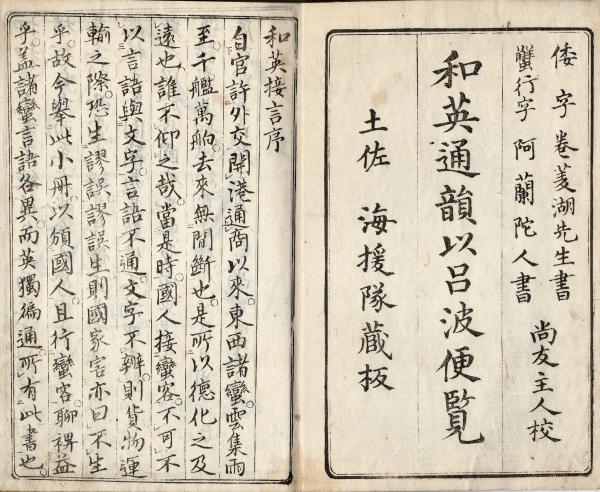 倭字 巻菱湖先生書
蟹行字 阿蘭陀人書
尚友主人校
和英通韻以呂波便覧
土佐 海援隊蔵板
和英接言序
自官許外交開港通商以来。東西諸蠻雲集雨
至。千艦萬舶。去来無間斷也。是所以徳化之及
遠也。誰不仰之哉。當是時。國人接蠻客。不可不
以言語與文字。言語不通。文字不辨。則貨物運
輸之際。恐生謬誤。謬誤生則國家害亦曰不生
乎。故今舉此小冊。以頒國人且行蠻客。聊裨益
乎。蓋諸蠻言語各異。而英獨徧通。所有此書也。